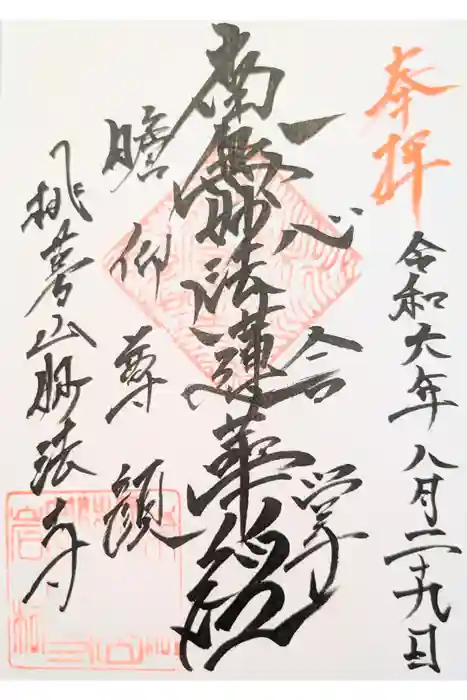 奉拝
令和六年八月二十九日
一心合掌
南無妙法蓮華経
瞻仰尊顔
桃夢山妙法寺